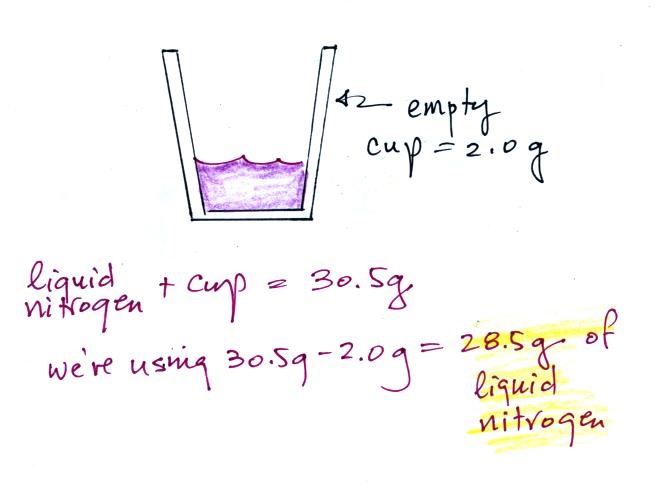 empty
cup = 2.0 g
liquid
nitrogen + cup = 30.5g
we're using 30.5g - 2.0g = 28.5g of
liquid
nitrogen